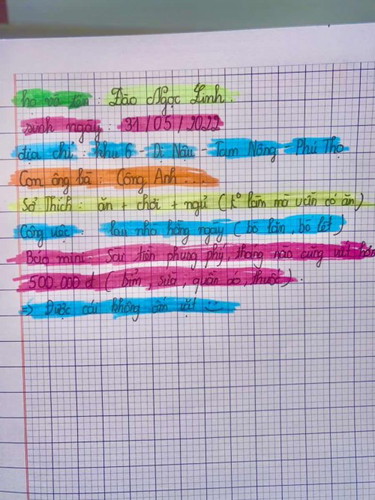 họ và tên : Đào Ngọc Linh.
sinh ngày 31/05/2022
địa chỉ : Khu 6 - Dị Nậu - Tam Nông - Phú Thọ
Con ông bà Công Anh...
Sở Thích : ăn + chơi + ngủ ( k° làm mà vẫn có ăn)
Công việc : lau nhà hằng ngày ( bò lăn, bò lết)
Báo mini : Sài tiền phung phí, tháng nào cũng vứt hơn
500.000 đ ( bỉm, sữa, quần áo, thuốc).
=> Được cái không ăn vặt